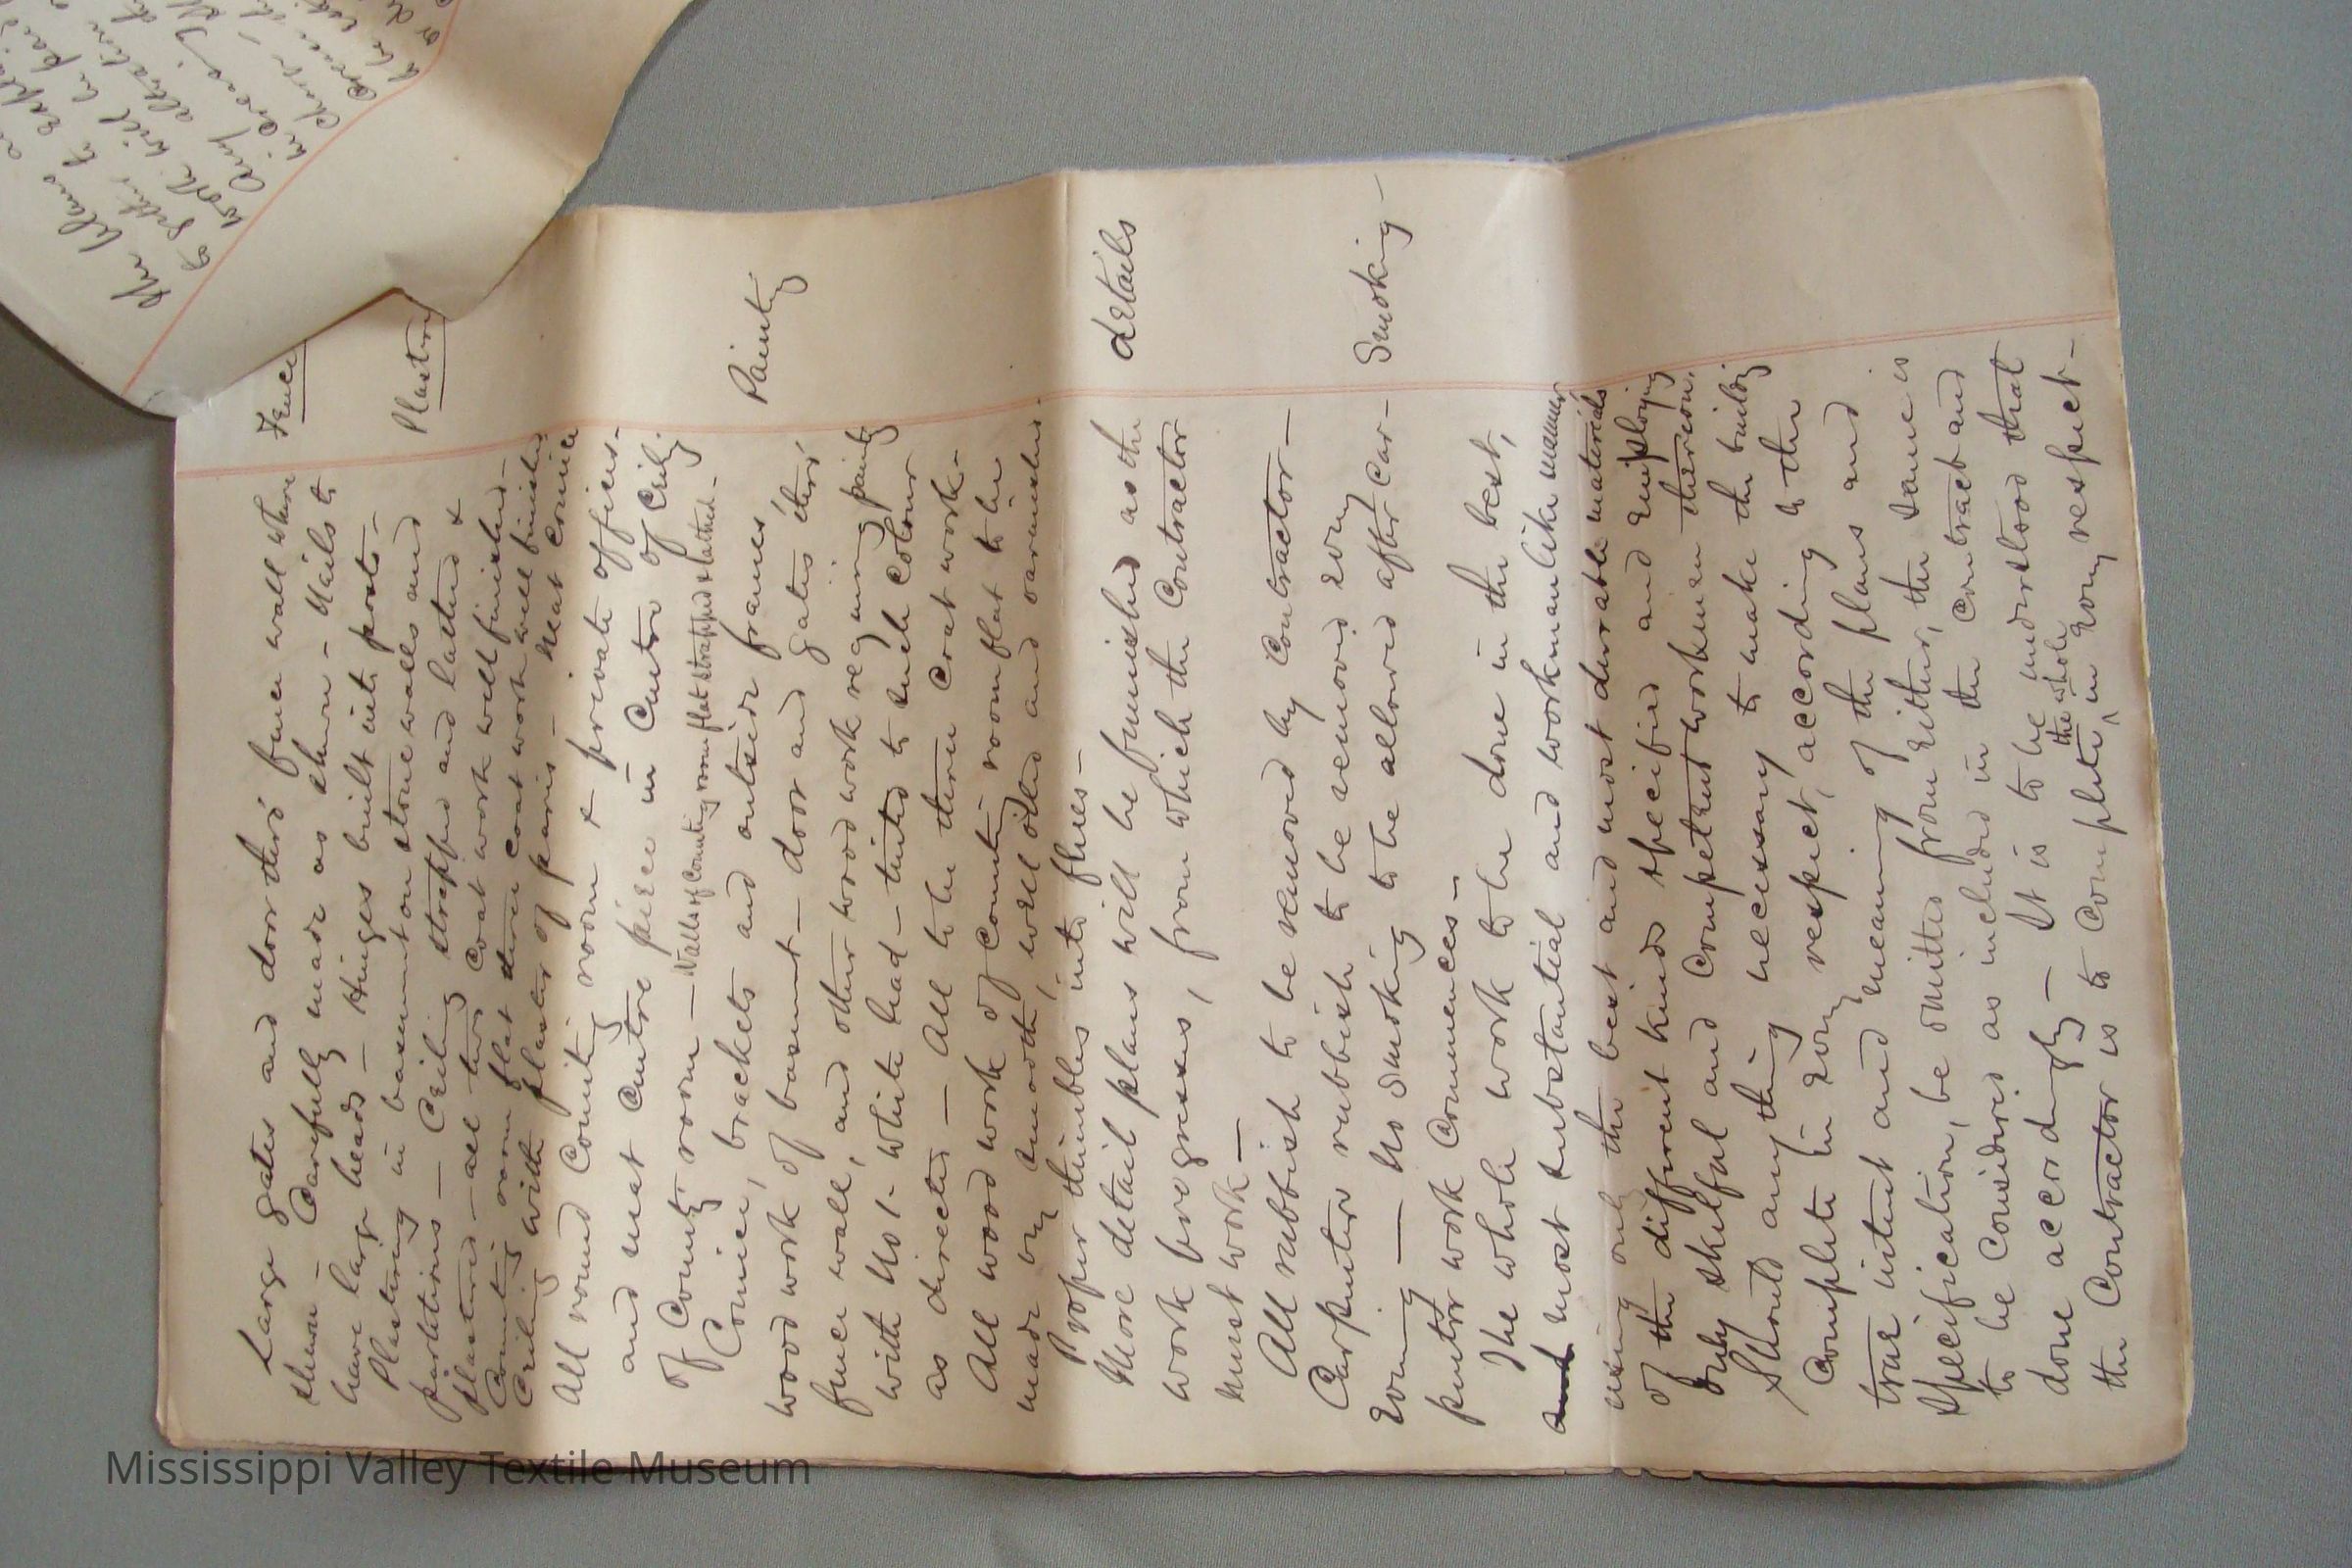 Large gates and doors thro' fence wall where Fence
shewn - Carefully made as shewn - Nails to
have large heads - Hinges built into posts -
Plastering in basement on stone walls and Plastrg
partitions - Ceiling strapped and lathed &
plastered - all two coat work well finished -
Counting room flat three coat work well finished
Ceiling with plaster of paris - Neat cornice
All round Counting room & private offices -
and neat Centre piece in Centre of Ceilg
of Countg room - Walls of Counting room flat strapped & lathed -
Cornice, brackets and outside frames, Painting
wood work of basement - door and gates thro'
fence wall, and other wood work requiring paintg
with No 1 - white lead - tinted to such colour
as directed - All to be three coat work -
All wood work of Counting room flat to be
made very smooth, well oiled and varnished.
Proper thimbles into flues -
More detail plans will be furnished as the details
work progresses, from which the Contractor
must work -
All rubbish to be removed by Contractor -
Carpenter rubbish to be removed every
evening - No Smoking to be allowed after Car- Smoking -
penter work commences -
The whole work to be done in the best,
and most substantial and workmanlike manner,
using only the best and most durable materials
of the different kinds specified and employing
only skilful and competent workmen thereon.
Should any thing necessary to make the buildg
complete in every respect, according to the
true intent and meaning of the plans and
specification, be omitted from either, the same is
to be considered as included in the contract and
done accordingly - It is to be understood that
the whole
the Contractor is to complete in every respect -
The plans
to
work will be
Any alteration